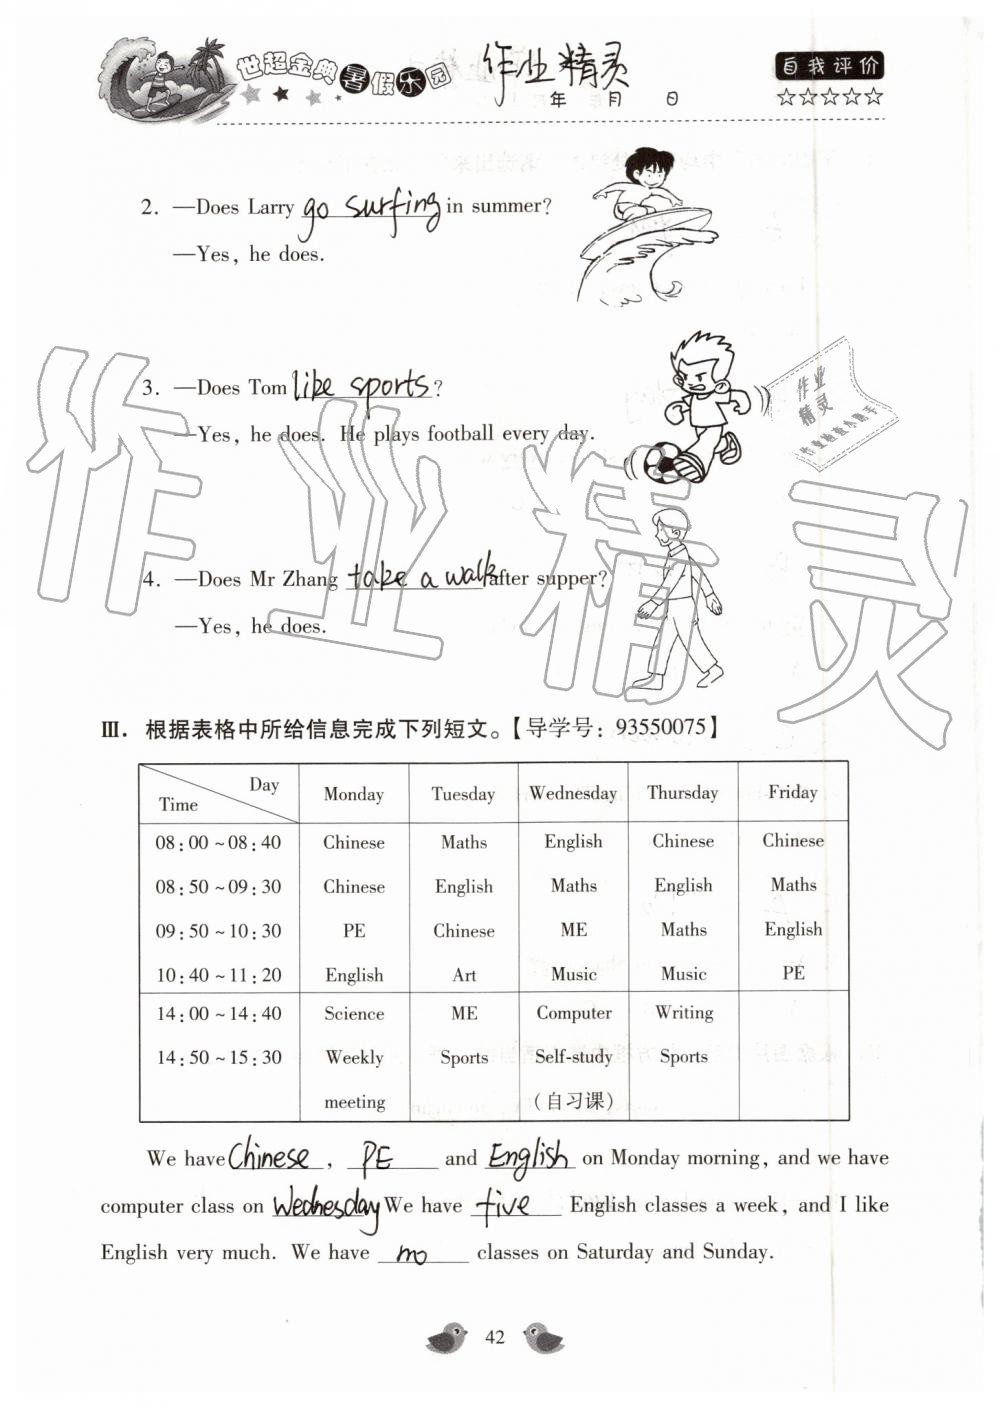 世超金典暑假乐园 作业精灵 自我评价
年 月 日 ☆☆☆☆☆
2. —Does Larry go surfing in summer?
—Yes, he does.
3. —Does Tom like sports?
—Yes, he does. He plays football every day.
作业
精灵
作业精灵
4. —Does Mr Zhang take a walk after supper?
—Yes, he does.
Ⅲ. 根据表格中所给信息完成下列短文。【导学号: 93550075】
Day Time Monday Tuesday Wednesday Thursday Friday
08:00~08:40 Chinese Maths English Chinese Chinese
08:50~09:30 Chinese English Maths English Maths
09:50~10:30 PE Chinese ME Maths English
10:40~11:20 English Art Music Music PE
14:00~14:40 Science ME Computer Writing
14:50~15:30 Weekly Sports Self-study Sports
meeting (自习课)
We have Chinese, PE and English on Monday morning, and we have
computer class on Wednesday We have five English classes a week, and I like
English very much. We have no classes on Saturday and Sunday.
42